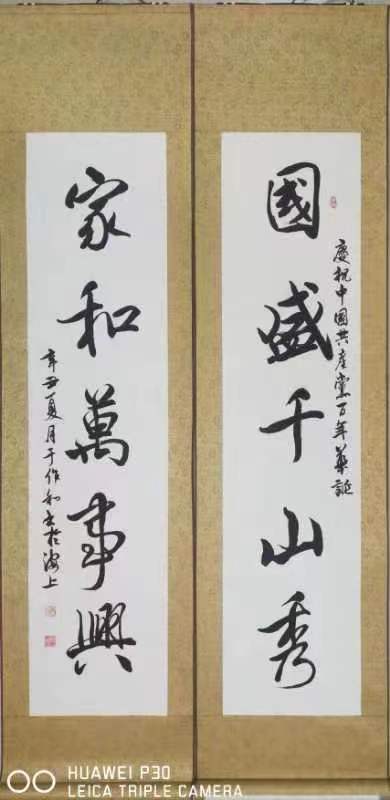 國盛千山秀
慶祝中國共產黨百年華誕
家和萬事興
辛丑夏月于作和書於海上
HUAWEI P30
LEICA TRIPLE CAMERA